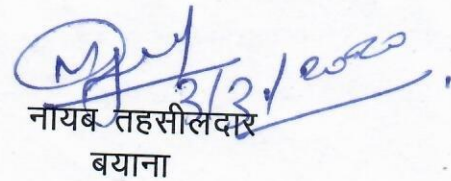 3/3/2020
नायब तहसीलदार
बयाना